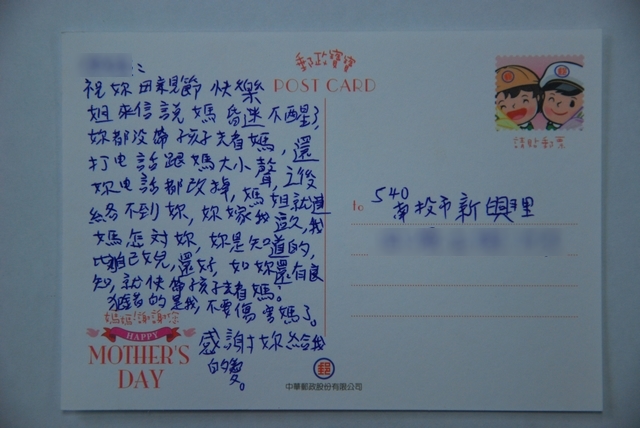 郵政寶寶
POST CARD
請貼郵票
祝妳母親節快樂
姐來信說媽昏迷不醒了
妳都沒帶孩子去看媽,還
打电話跟媽大小聲,之後
妳电話都改掉,媽姐就連
絡不到妳,妳嫁我這久,我
媽怎対妳,妳是知道的,
比自己女兒,還好,如妳還有良
知,就快帶孩子去看媽。
的是我,不要傷害媽了。
感謝妳給我
的愛。
to
540
南投市新興里
媽媽!謝謝您
HAPPY
MOTHER'S
DAY
郵
中華郵政股份有限公司